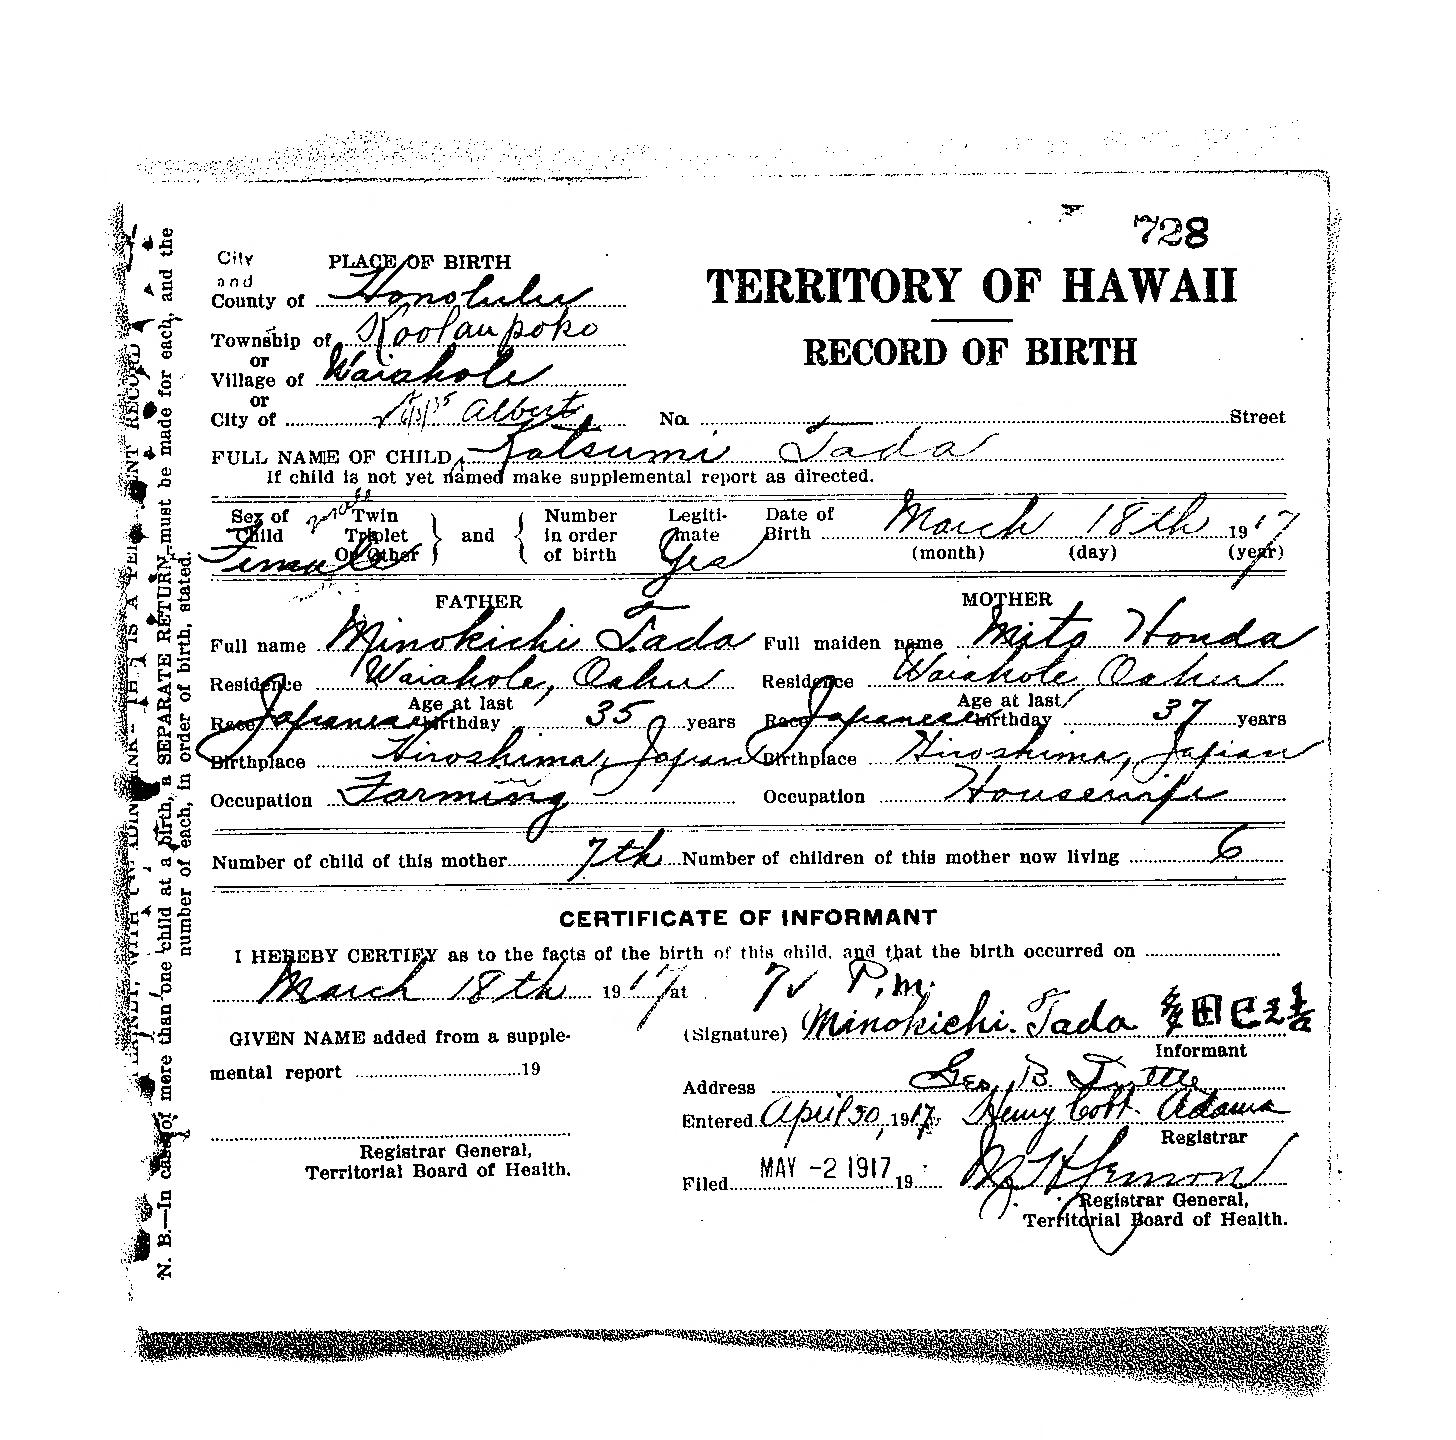 728
TERRITORY OF HAWAII
RECORD OF BIRTH
PLACE OF BIRTH
City and County of Honolulu
Township of Koolaupoko
or
Village of Waiahole
or
City of
No. Street
Albert
FULL NAME OF CHILD Katsumi Tada
If child is not yet named make supplemental report as directed.
Sex of Child Female male
Twin Triplet Or Other } and { Number in order of birth
Legitimate Yes
Date of Birth March 18th 1917
(month) (day) (year)
FATHER
Full name Minokichi Tada
Residence Waiahole, Oahu
Race Japanese Age at last birthday 35 years
Birthplace Hiroshima, Japan
Occupation Farming
MOTHER
Full maiden name Mito Honda
Residence Waiahole, Oahu
Race Japanese Age at last birthday 37 years
Birthplace Hiroshima, Japan
Occupation Housewife
Number of child of this mother 7th Number of children of this mother now living 6
CERTIFICATE OF INFORMANT
I HEREBY CERTIFY as to the facts of the birth of this child, and that the birth occurred on
March 18th 1917 at 7 P.m.
(Signature) Minokichi Tada 多田巳之吉
Informant
GIVEN NAME added from a supple-
mental report 19
Registrar General,
Territorial Board of Health.
Address Geo. B. Tuttle
Entered April 30, 1917, Henry Cobb Adams
Registrar
Filed MAY -2 1917 19
Registrar General,
Territorial Board of Health.
N. B.—In case of more than one child at a birth, a SEPARATE RETURN must be made for each, and the
number of each, in order of birth, stated.